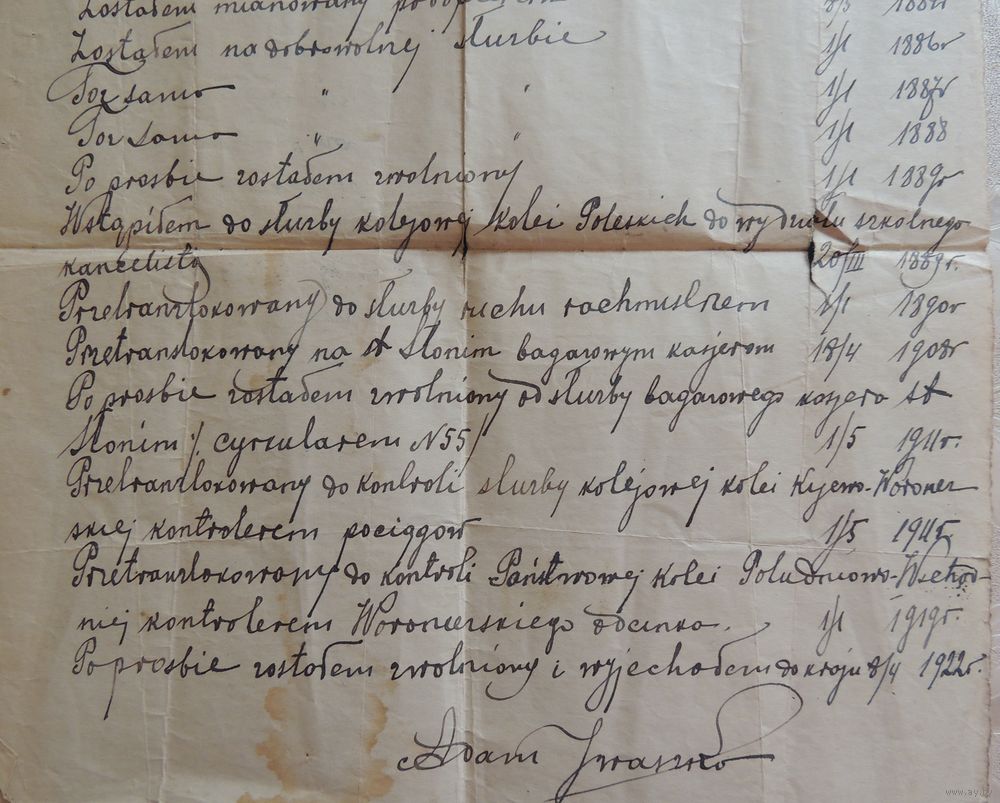 Zostałem mianowany 
Zostałem na dobrowolnej służbie 1/I 1886r
Toż samo " " 1/I 1887r
Toż samo " " 1/I 1888
Po prosbie zostałem zwolniony 1/I 1889r
Wstąpiłem do służby kolejowej kolei Poleskich do wydziału szkolnego
kancelistą 20/III 1889r.
Przetranzlokowany do służby ruchu rachmistrzem 1890r
Przetranzlokowany na st Słonim bagażowym kasjerom 18/4 1908r
Po prosbie zostałem zwolniony od służby bagażowego kasjera st
Słonim /. cyrkularem N55/ 1/5 1911r.
Przetranzlokowany do kontroli służby kolejowej kolei Kijewo-Woroneż
skiej kontrolerem pociągów 1/5 1911r.
Przetranzlokowany do kontroli Państwowej Kolei Południowo-Wschod-
niej kontrolerem Woroneżskiego odcinka. 1/I 1919r.
Po prosbie zostałem zwolniony i wyjechałem do kraju 8/4 1922r.
Adam Iwaszko
www.ay.by